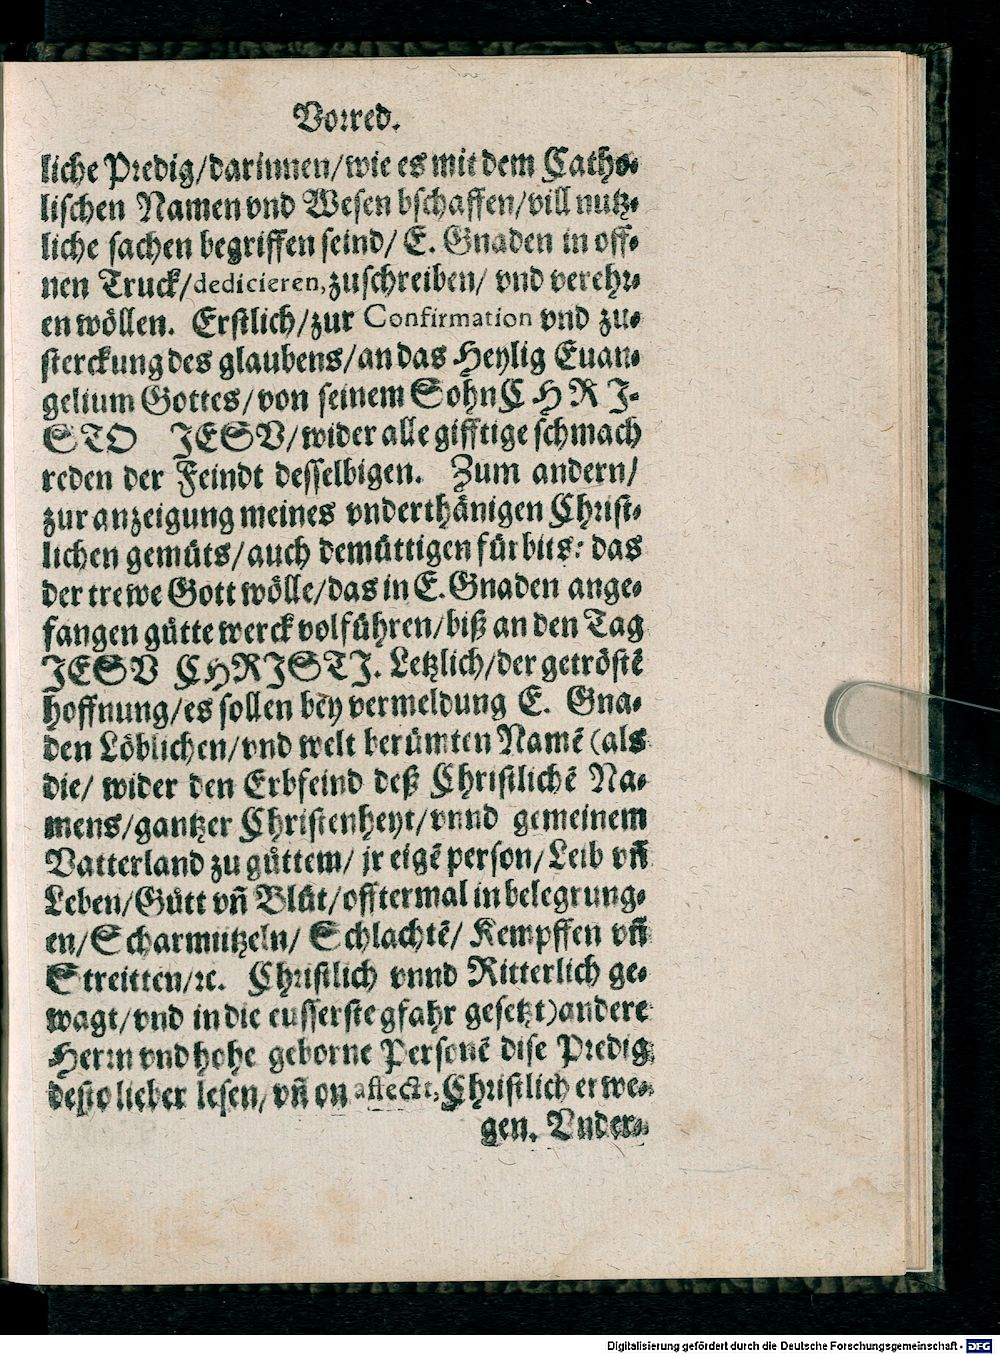 Vorred.
liche Predig/darinnen/wie es mit dem Catho-
lischen Namen vnd Wesen bschaffen/vill nutz-
liche sachen begriffen seind/ E. Gnaden in off-
nen Truck/dedicieren, zuschreiben/ vnd verehr-
en wöllen. Erstlich/zur Confirmation vnd zu-
sterckung des glaubens/an das Heylig Euan-
gelium Gottes/von seinem Sohn CHRI-
STO JESV/wider alle gifftige schmach
reden der Feindt desselbigen. Zum andern/
zur anzeigung meines vnderthänigen Christ-
lichen gemüts/auch demüttigen fürbits: das
der trewe Gott wölle/das in E. Gnaden ange-
fangen gütte werck volführen/biß an den Tag
JESV CHRISTI. Letzlich/der getröstē
hoffnung/es sollen bey vermeldung E. Gna-
den Löblichen/vnd welt berümten Namē (als
die/ wider den Erbfeind deß Christlichē Na-
mens/gantzer Christenheyt/vnnd gemeinem
Vatterland zu güttem/ jr eigē person/Leib vñ
Leben/Gütt vñ Blüt/offtermal in belegrung-
en/Scharmützeln/ Schlachtē/ Kempffen vñ
Streitten/ꝛc. Christlich vnnd Ritterlich ge-
wagt/vnd in die eusserste gfahr gesetzt) andere
Herrn vnd hohe geborne Personē dise Predig
desto lieber lesen/vñ on affectt, Christlich erwe-
gen. Vnder-
Digitalisierung gefördert durch die Deutsche Forschungsgemeinschaft - DFG